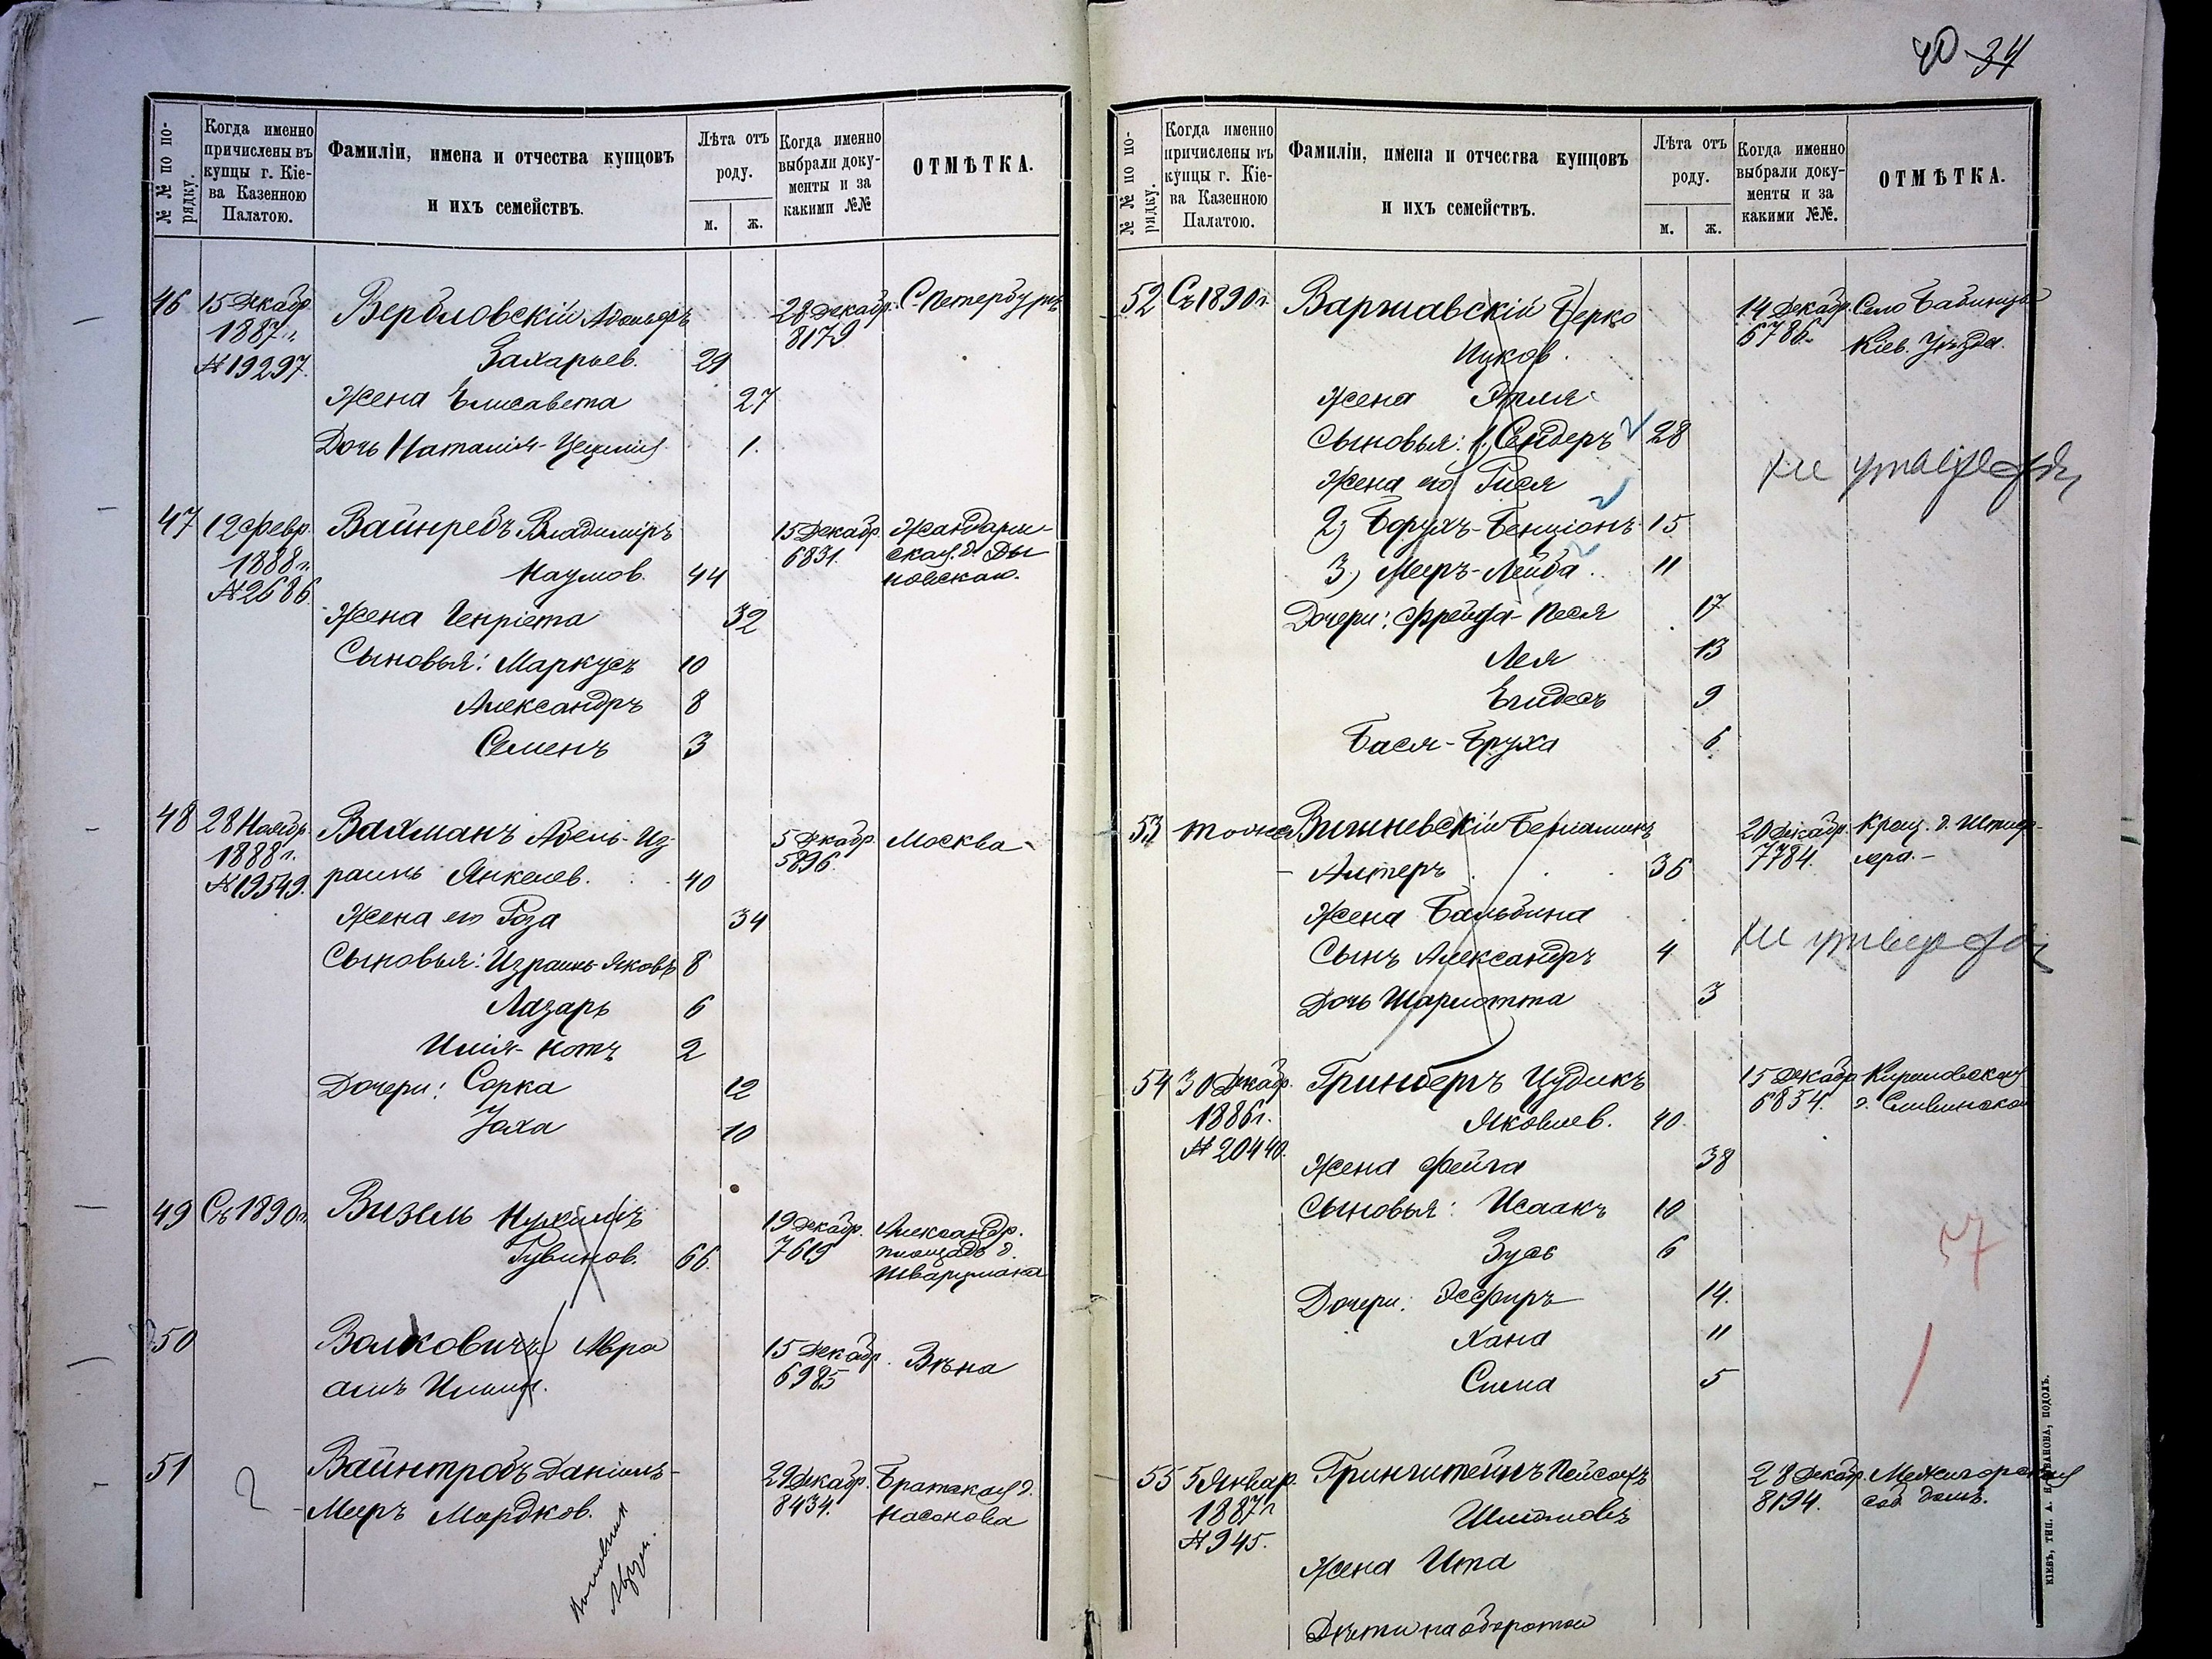 40 34
№ № по порядку.
Когда именно причислены въ купцы г. Кіева Казенною Палатою.
Фамиліи, имена и отчества купцовъ
и ихъ семействъ.
Лѣта отъ роду.
м. ж.
Когда именно выбрали документы и за какими №№
ОТМѢТКА.
46 15 Декабр. Вербловскій Адольфъ 28 Декабр. С-Петербургъ
1887 г. 8179
№ 19297. Захарьев. 29
Жена Елисавета 27
Дочь Наталія-Цецилія 1.
47 12 Февр. Вайнребъ Владиміръ 15 Декабр. Жандарм-
1888 г. Наумов. 44 6831. ская, д. Ды
№ 2686. новскаго.
Жена Генріета 32
Сыновья: Маркусъ 10
Александръ 8
Семенъ 3
48 28 Ноябр. Вахманъ Абель-Из 5 Декабр. Москва
1888 г. раиль Янкелев. 40 5896.
№ 19549.
Жена его Роза 34
Сыновья: Израиль-Яковъ 8
Лазарь 6
Илія-Нотъ 2
Дочери: Сорка 12
Хаха 10
49 Съ 1890 г. Визель Нухимъ 19 Декабр. Александр.
Рувинов. 66. 7619 площадь д.
Шварцмана
50 Волковичъ Авра 15 Декабр. Вѣна
амъ Илиин. 6985
51 Вайнтробъ Даніилъ- 29 Декабр. Братская д.
? Меиръ Мордков. 8434. Насонова
№ № по порядку.
Когда именно причислены въ купцы г. Кіева Казенною Палатою.
Фамиліи, имена и отчества купцовъ
и ихъ семействъ.
Лѣта отъ роду.
м. ж.
Когда именно выбрали документы и за какими №№.
ОТМѢТКА.
52 Съ 1890 г. Варшавскій Берко 14 Декабр. Село Бабинцы
Ицков. 6786. Кіев. Уѣзда.
Жена Этля
Сыновья: 1, Сендеръ 28
Жена его Гися
не утвержд
2) Борухъ-Бенціонъ 15
3) Мееръ-Лейба 11
Дочери: Фрейда-Песя 17
Лея 13
Егидесъ 9
Бася-Бруха 6
53 тоже Вишневскій Беніаминъ 20 Декабр. Крещ. д. Штиф-
Алтеръ 36 7784. лера.-
Жена Бальбина
не утвержд
Сынъ Александръ 4
Дочь Шарлотта 3
54 30 Декабр. Гринбергъ Цудикъ 15 Декабр. Кириловская
1886 г. Яковлев. 40. 6854. д. Сливинской
№ 20440.
Жена Фейга 38
Сыновья: Исаакъ 10
Зусь 6
57
Дочери: Эсфирь 14.
Хана 11
Сима 5
55 5 Январ. Гринштейнъ Пейсахъ 28 Декабр. Межигорская
1887 г. Шлiомовъ 8194. соб. домъ.
№ 945.
Жена Ита
Дѣти на оборотѣ
КІЕВЪ, ТИП. А. ПОДОЛЪ.